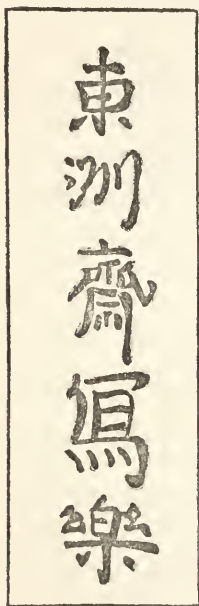 東洲齋寫樂